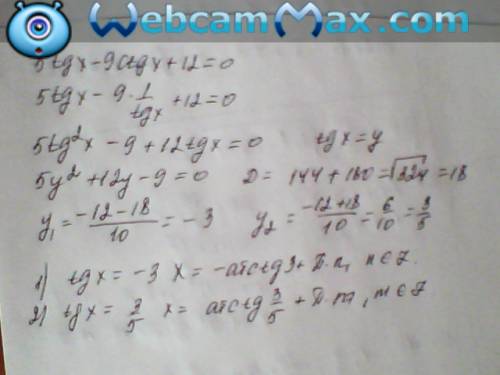 WebcamMax.com
5tgx-9ctgx+12=0
5tgx - 9·1/tgx +12=0
5tg²x - 9+12tgx=0 tgx=y
5y²+12y-9=0 D= 144+180=√324=18
y₁= -12-18/10 = -3 y₂= -12+18/10 = 6/10 = 3/5
1) tgx= -3 x= -arctg3+π·n, n∈Z.
2) tgx= 3/5 x= arctg 3/5 + π·m, m∈Z